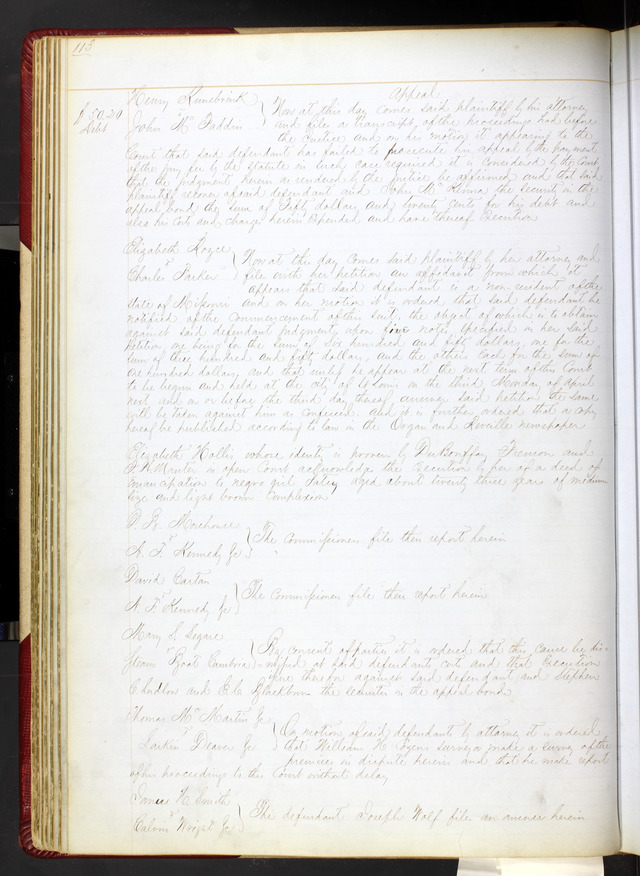 113
Henry Kunebrink
Appeal
$50.20
Debt
John Mc Faddin
Now at this day comes said plaintiff by his attorney
and files a transcript of the proceedings had before
the Justice and on his motion it appearing to the
Court that said defendant has failed to prosecute his appeal by the payment
of the jury fee by the statute in such case required it is considered by the Court
that the judgment herein as rendered by the Justice be affirmed and that said
plaintiff recover of said defendant and John Mc Kenna the security in the
appeal bond the sum of Fifty dollars and twenty cents for his debt and
also his costs and charges herein expended and have thereof Execution
Elizabeth Royce
vs
Charles Parker
Now at this day comes said plaintiff by her attorney and
files with her petition an affidavit from which it
appears that said defendant is a non-resident of the
state of Missouri and on her motion it is ordered that said defendant be
notified of the commencement of this suit, the object of which is to obtain
against said defendant judgment upon five notes specified in her said
petition one being for the sum of Six hundred and fifty dollars, one for the
sum of three hundred and fifty dollars, and the others each for the sum of
one hundred dollars, and that unless he appear at the next term of this Court
to be begun and held at the city of St Louis on the third Monday of April
next and on or before the third day thereof answer said petition the same
will be taken against him as confessed. And it is further ordered that a copy
hereof be published according to law in the Organ and Reveille newspaper
Elizabeth Hollis whose identity is proven by Freeman and
J. H. in open Court acknowledges the Execution by her of a deed of
emancipation to negro girl aged about twenty three years of medium
size and light brown complexion
Morehouse
vs
A. F. Kennedy Jr
The commissioners file their report herein
David Cartan
vs
A. F. Kennedy Jr
The commissioners file their report herein
Mary S. Segare
vs
Steam Boat Cambria
By consent of parties it is ordered that this cause be dis-
-missed at said defendants costs and that Execution
issue therefor against said defendant and Stephen
and Blackburn the securities in the appeal bond
Thomas Mc Martin Jr
vs
Larkin Deaver Jr
On motion of said defendants by attorney it is ordered
that William H. surveyor make a survey of the
premises in dispute herein and that he make report
of his proceedings to this Court without delay
James H. Smith
vs
Calvin Wright Jr
The defendant Joseph Wolf files an answer herein